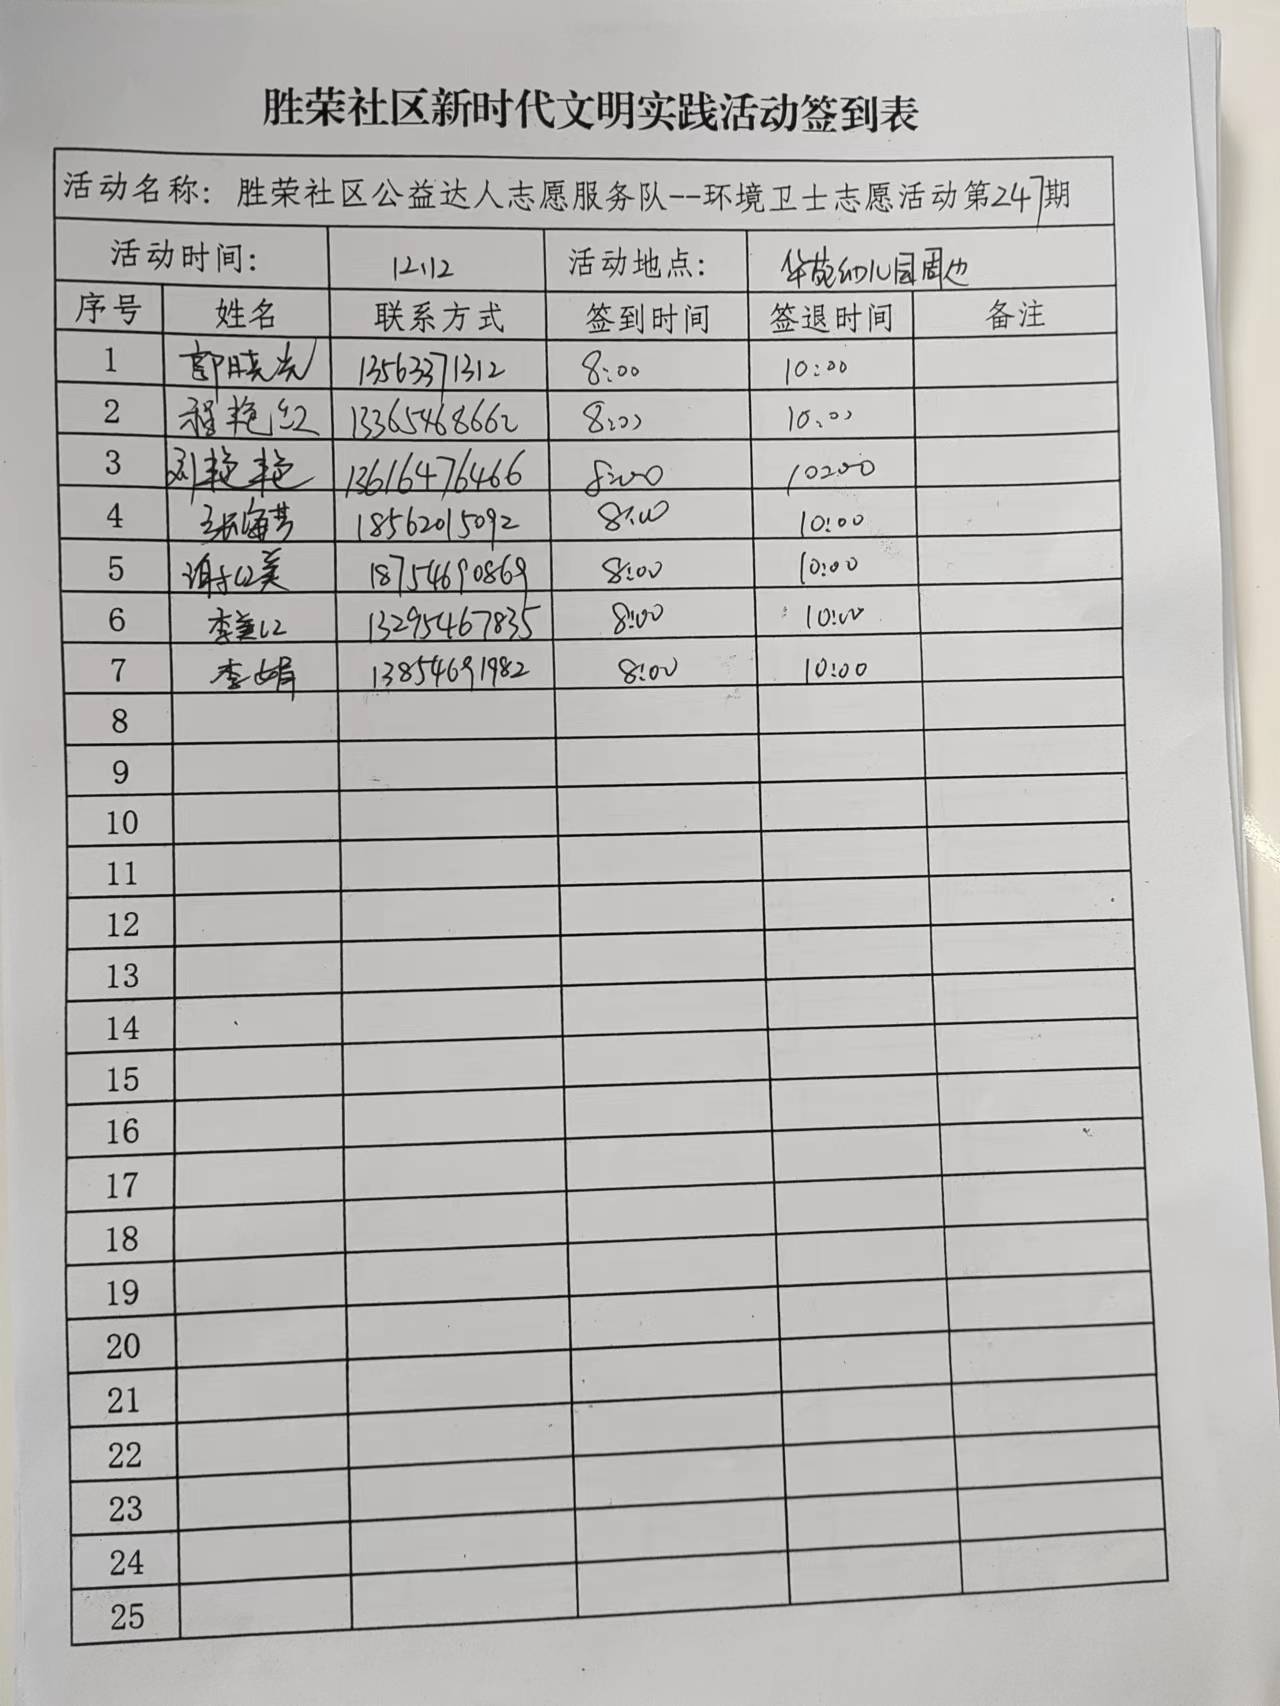 胜荣社区新时代文明实践活动签到表
活动名称：胜荣社区公益达人志愿服务队--环境卫士志愿活动第247期
活动时间： 12.12 活动地点： 华苑幼儿园周边
序号 姓名 联系方式 签到时间 签退时间 备注
1 郭晓光 13563371312 8:00 10:00
2 程艳红 13365468662 8:00 10:00
3 刘艳艳 13616476466 8:00 10:00
4 张海芳 18562015092 8:00 10:00
5 谢红美 18754690869 8:00 10:00
6 李美红 13295467835 8:00 10:00
7 李娟 13854691982 8:00 10:00
8
9
10
11
12
13
14
15
16
17
18
19
20
21
22
23
24
25